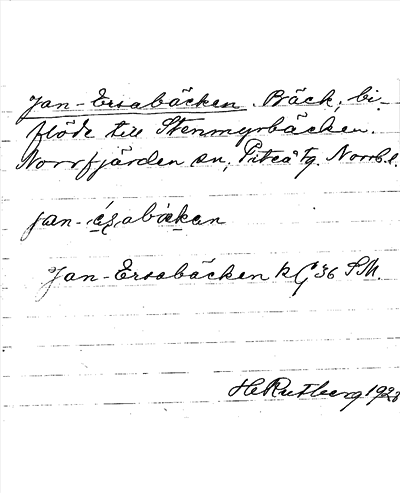 Jan-Ersabäcken. Bäck, bi-
flöde till Stenmyrbäcken.
Norrfjärden sn, Piteå tg. Norrb. l.
jan-
Jan-Ersabäcken k G 36 SM.
H Rutberg 192